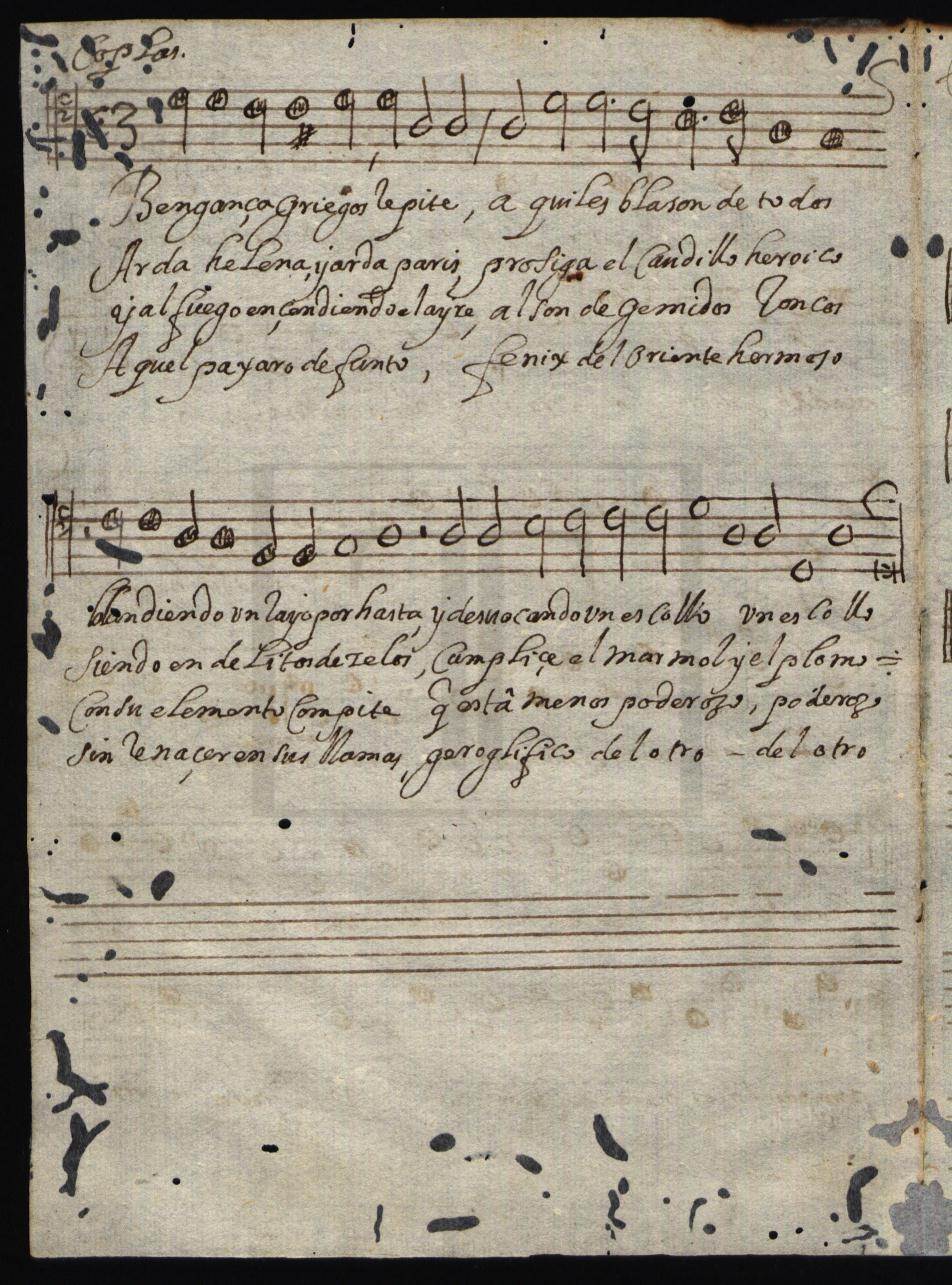 Coplas.
Bengança griegos repite, a quiles blason de todos
Arda helena, y arda paris, prosiga el Caudillo heroico
y al fuego ençendiendo el ayre, al son de gemidos roncos
Aquel paxaro defunto, fenix del oriente hermoso
blandiendo vn rayo por hasta, y desuocando vn escollo vn escollo
siendo en delitos de zelos, Complice el marmol y el plomo =
Con su elemento Compite q̃ està menos poderoso, poderoso
sin renaçer en sus llamas, geroglifico del otro - del otro